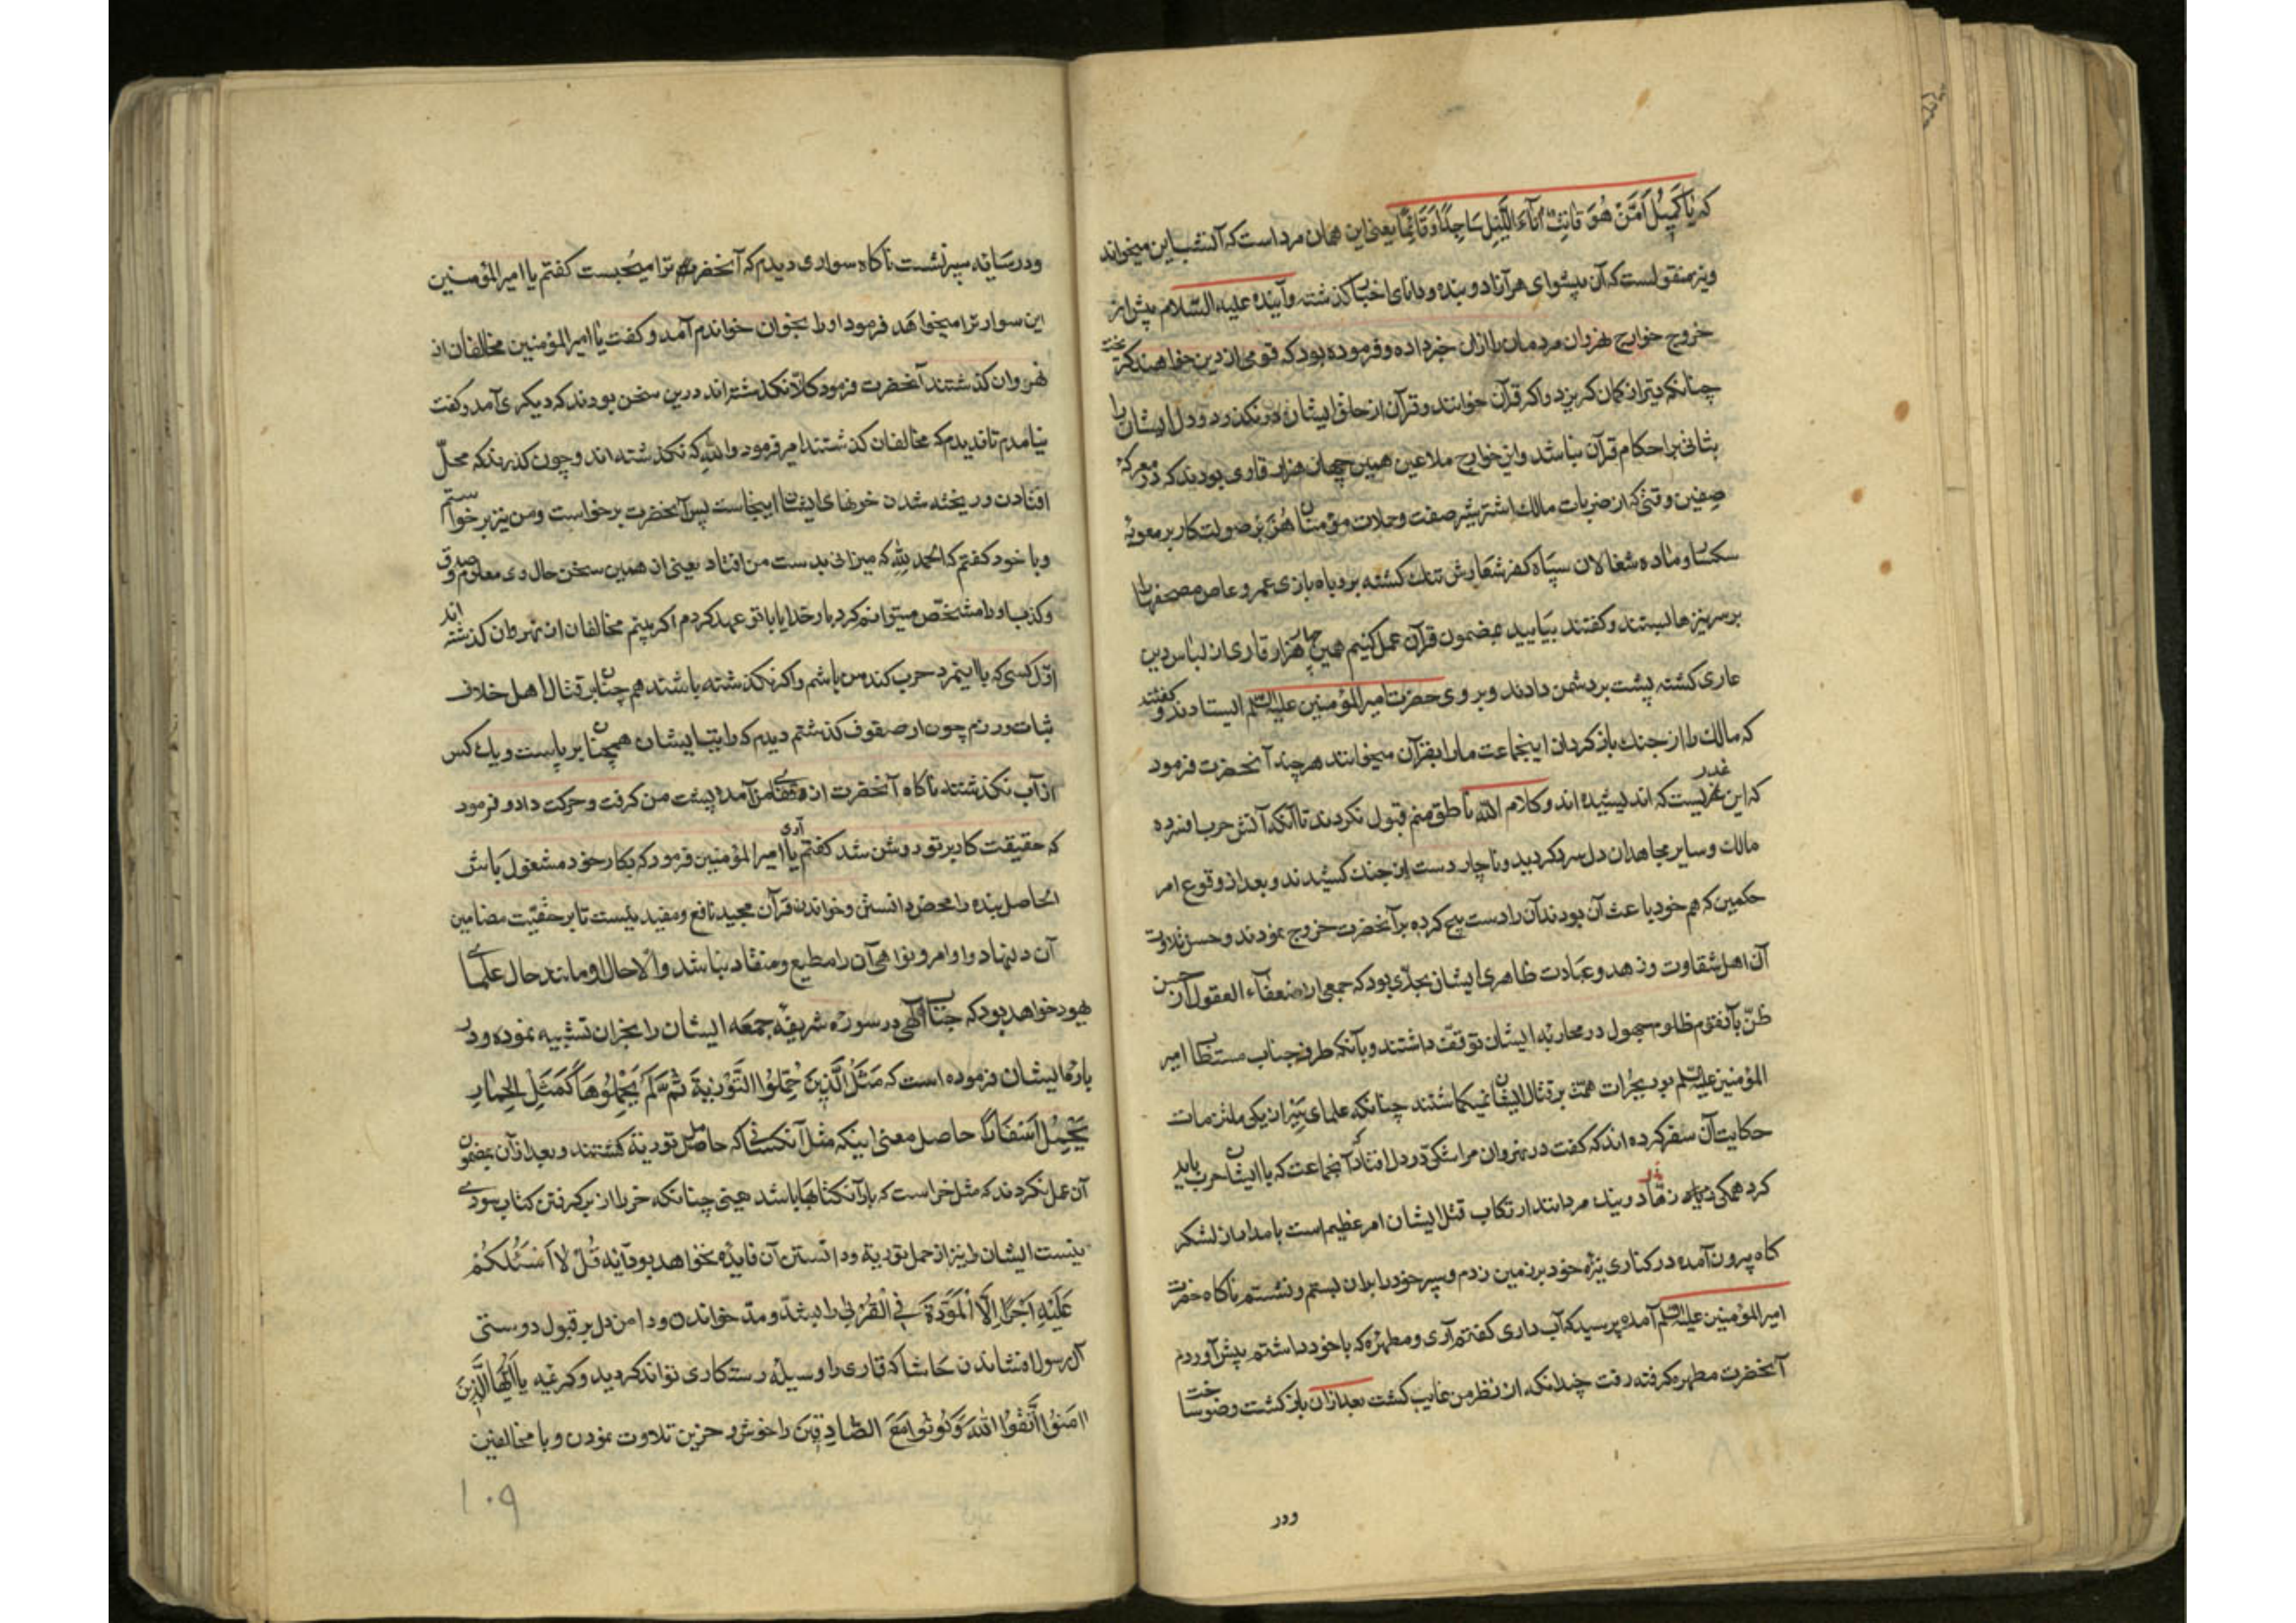 که یا کمیل اَمَّنْ هُوَ قَانِتٌ آنَاءَ اللَّیْلِ سَاجِدًا وَقَائِمًا یعنی این همان مرد است که آنشب این میخواند
ونیز منقولست که آن پیشوای هر آزاد و بنده ودانای اخبار کذشته وآینده علیه السلام پیش از
خروج خوارج نهروان مردمان را ازان خبر داده وفرموده بود که قومی از دین خواهند کریخت
چنانکه تیر از کمان کریزد واکر قرآن خوانند وقرآن از حلق ایشان در نکذرد ودل ایشان را
ثباتی بر احکام قرآن نباشد واین خوارج ملاعین همین چهار هزار قاری بودند که در معرکهٔ
صفین وقتی که از ضربات مالک اشتر شیر صفت وحملات مؤمنان هزبر صولت کار بر معویهٔ
سکسار وماده شغالان سپاه کفر شعارش تنک کشته بروباه بازی عمرو عاص مصحفها را
بر سر نیزها بستند وکفتند بیایید بمضمون قرآن عمل کنیم همین چهار هزار قاری از لباس دین
عاری کشته پشت بر دشمن دادند وبر وی حضرت امیرالمؤمنین علیه السلم ایستادند وکفتند
که مالک را از جنک باز کردان اینجماعت ما را بقرآن میخوانند هر چند آنحضرت فرمود
که این غدریست که اندیشیده اند وکلام الله ناطق منم قبول نکردند تا آنکه آتش حرب افسرده
مالک وسایر مجاهدان دل سرد کردید وناچار دست از جنک کشیدند وبعد از وقوع امر
حکمین که هم خود باعث آن بودند آن را دست پیچ کرده بر آنحضرت خروج نمودند وحسن تلاوت
آن اهل شقاوت وزهد وعبادت ظاهری ایشان بحدّی بود که جمعی از ضعفاء العقول از حسن
ظنّ بآنقوم ظلوم جهول در محاربهٔ ایشان توقف داشتند وبا آنکه طرف جناب مستطاب امیر
المؤمنین علیه السلم بود بجرات همّت بر قتال ایشان نمیکماشتند چنانکه علمای سیر از یکی ملتزمات
حکایت آن سفر کرده اند که کفت در نهروان مرا شکی در دل افتاد که آنجماعت که با ایشان حرب باید
کرد همکی زهّاد ونیک مردانند ارتکاب قتل ایشان امر عظیم است بامدادان لشکر
کاه بیرون آمده در کناری نیزه خود بر زمین زدم وسپر خود را بران بستم ونشستم ناکاه حضرت
امیرالمؤمنین علیه السلم آمده پرسید که آب داری کفتم آری ومطهره که با خود داشتم پیش آوردم
آنحضرت مطهره کرفته رفت چندانکه از نظر من غایب کشت بعد ازان باز کشت وضو ساخت
ودر
ودر سایه سپر نشست ناکاه سواری دیدم که آنحضرت را میجست کفتم یا امیرالمؤمنین
این سوار ترا میخواهد فرمود او را بخوان خواندم آمد وکفت یا امیرالمؤمنین مخالفان از
نهروان کذشتند آنحضرت فرمود کلّا نکذشته اند درین سخن بودند که دیکری آمد وکفت
نیامدم تا ندیدم که مخالفان کذشتند امیر فرمود والله که نکذشته اند وچون کذرند که محلّ
افتادن وریخته شدن خونهای ایشان اینجاست پس آنحضرت برخواست ومن نیز برخواستم
وبا خود کفتم که الحمد لله که میزانی بدست من افتاد یعنی از همین سخن حال وی معلوم وصدق
وکذب او را مشخّص میتوانم کرد بار خدایا با تو عهد کردم اکر بینم مخالفان از نهروان کذشته اند
اوّل کسی که با اینمرد حرب کند من باشم واکر نکذشته باشند هم چنان بر قتال اهل خلاف
ثبات ورزم چون از صفوف کذشتم دیدم که رایتهای ایشان همچنان بر پاست ویک کس
از آب نکذشته ناکاه آنحضرت از قفای من آمده پشت من کرفت وحرکت داد وفرمود
که حقیقت کار بر تو روشن شد کفتم آری یا امیرالمؤمنین فرمود که بکار خود مشغول باش
الحاصل بنده را محض دانستن وخواندن قرآن مجید نافع ومفید نیست تا بر حقیّت مضامین
آن دل نهاد واوامر ونواهی آن را مطیع ومنقاد نباشد والّا حال او مانند حال علمای
یهود خواهد بود که جناب الهی در سورهٔ شریفهٔ جمعه ایشان را بخران تشبیه نموده ودر
بارهٔ ایشان فرموده است که مَثَلُ الَّذِینَ حُمِّلُوا التَّوْرٰیةَ ثُمَّ لَمْ یَحْمِلُوهَا کَمَثَلِ الْحِمَارِ
یَحْمِلُ اَسْفَارًا حاصل معنی اینکه مثل آنکسانی که حامل توریة کشتند وبعد ازان بمضمون
آن عمل نکردند که مثل خر است که بار آن کتابها باشد یعنی چنانکه خر را از بر کرفتن کتاب سودی
نیست ایشان را نیز از حمل توریة ودانستن آن فایده نخواهد بود آیه قُلْ لَا اَسْئَلُکُمْ
عَلَیْهِ اَجْرًا اِلَّا الْمَوَدَّةَ فِی الْقُرْبٰی را بشدّ ومدّ خواندن ودامن دل بر قبول دوستی
آل رسول نفشاندن حاشا که قاری را وسیله رستکاری تواند کردید وکریمه یَا اَیُّهَا الَّذِینَ
اٰمَنُوا اتَّقُوا اللّٰهَ وَکُونُوا مَعَ الصَّادِقِینَ را خوش وحزین تلاوت نمودن وبا مخالفین
۱۰۹